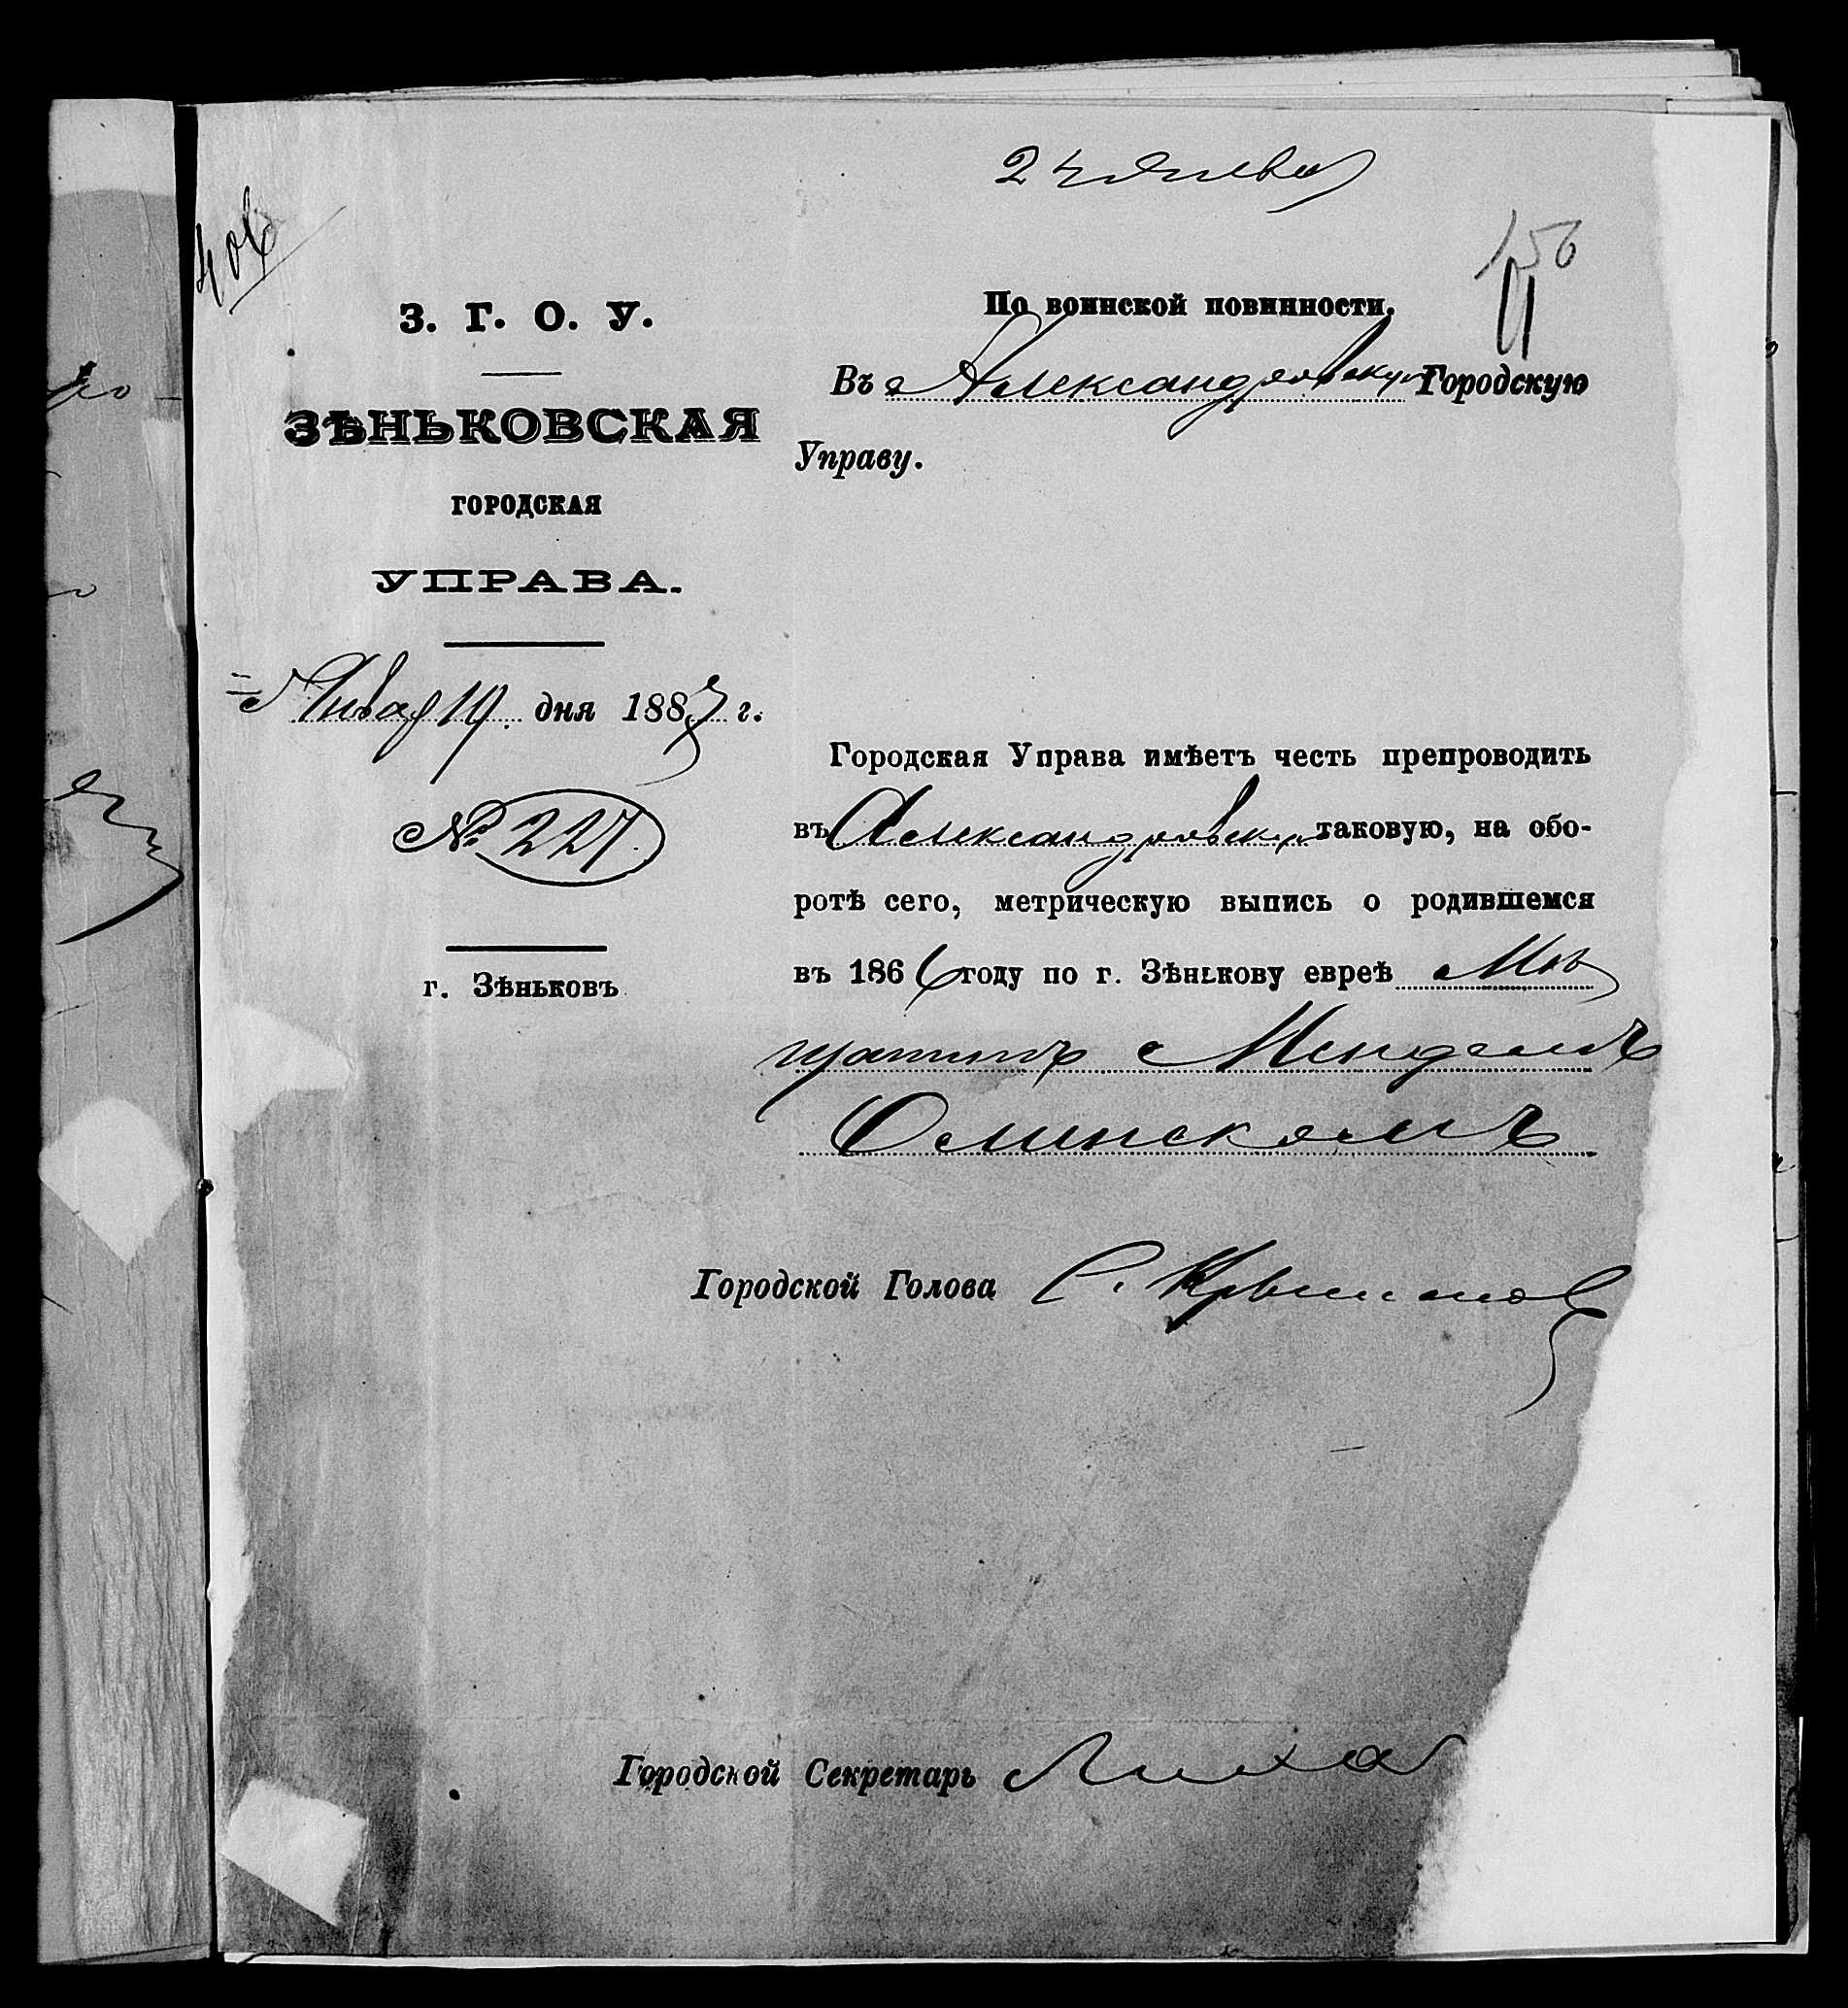 24 января
406
156
З. Г. О. У.
ЗѢНЬКОВСКАЯ
ГОРОДСКАЯ
УПРАВА.
Января 19 дня 1887 г.
№ 227.
г. Зѣньковъ
По воинской повинности.
Въ Александровскую Городскую
Управу.
Городская Управа имѣетъ честь препроводить
въ Александровскую таковую, на обо-
ротѣ сего, метрическую выпись о родившемся
въ 1866 году по г. Зѣнькову евреѣ
Менделѣ
Олинскомъ
Городской Голова С.
Городской Секретарь